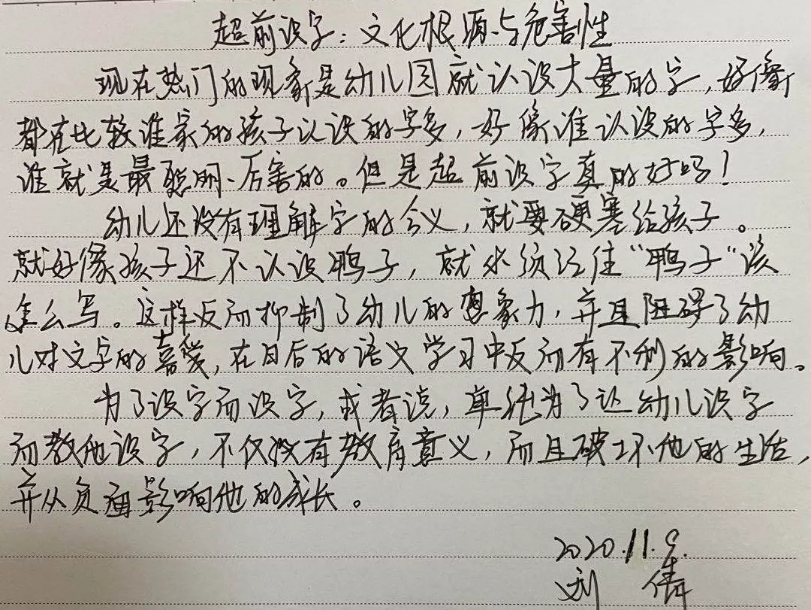 超前识字：文化根源与危害性
现在热门的现象是幼儿园就认识大量的字，好像
都在比较谁家的孩子认识的字多，好像谁认识的字多，
谁就是最聪明、厉害的。但是超前识字真的好吗！
幼儿还没有理解字的含义，就要硬塞给孩子。
就好像孩子还不认识鸭子，就必须记住“鸭子”该
怎么写。这样反而抑制了幼儿的想象力，并且阻碍了幼
儿对文字的喜爱，在日后的语文学习中反而有不利的影响。
为了识字而识字，或者说，单纯为了让幼儿识字
而教他识字，不仅没有教育意义，而且破坏他的生活，
并从负面影响他的成长。
2020.11.9.
刘 倩